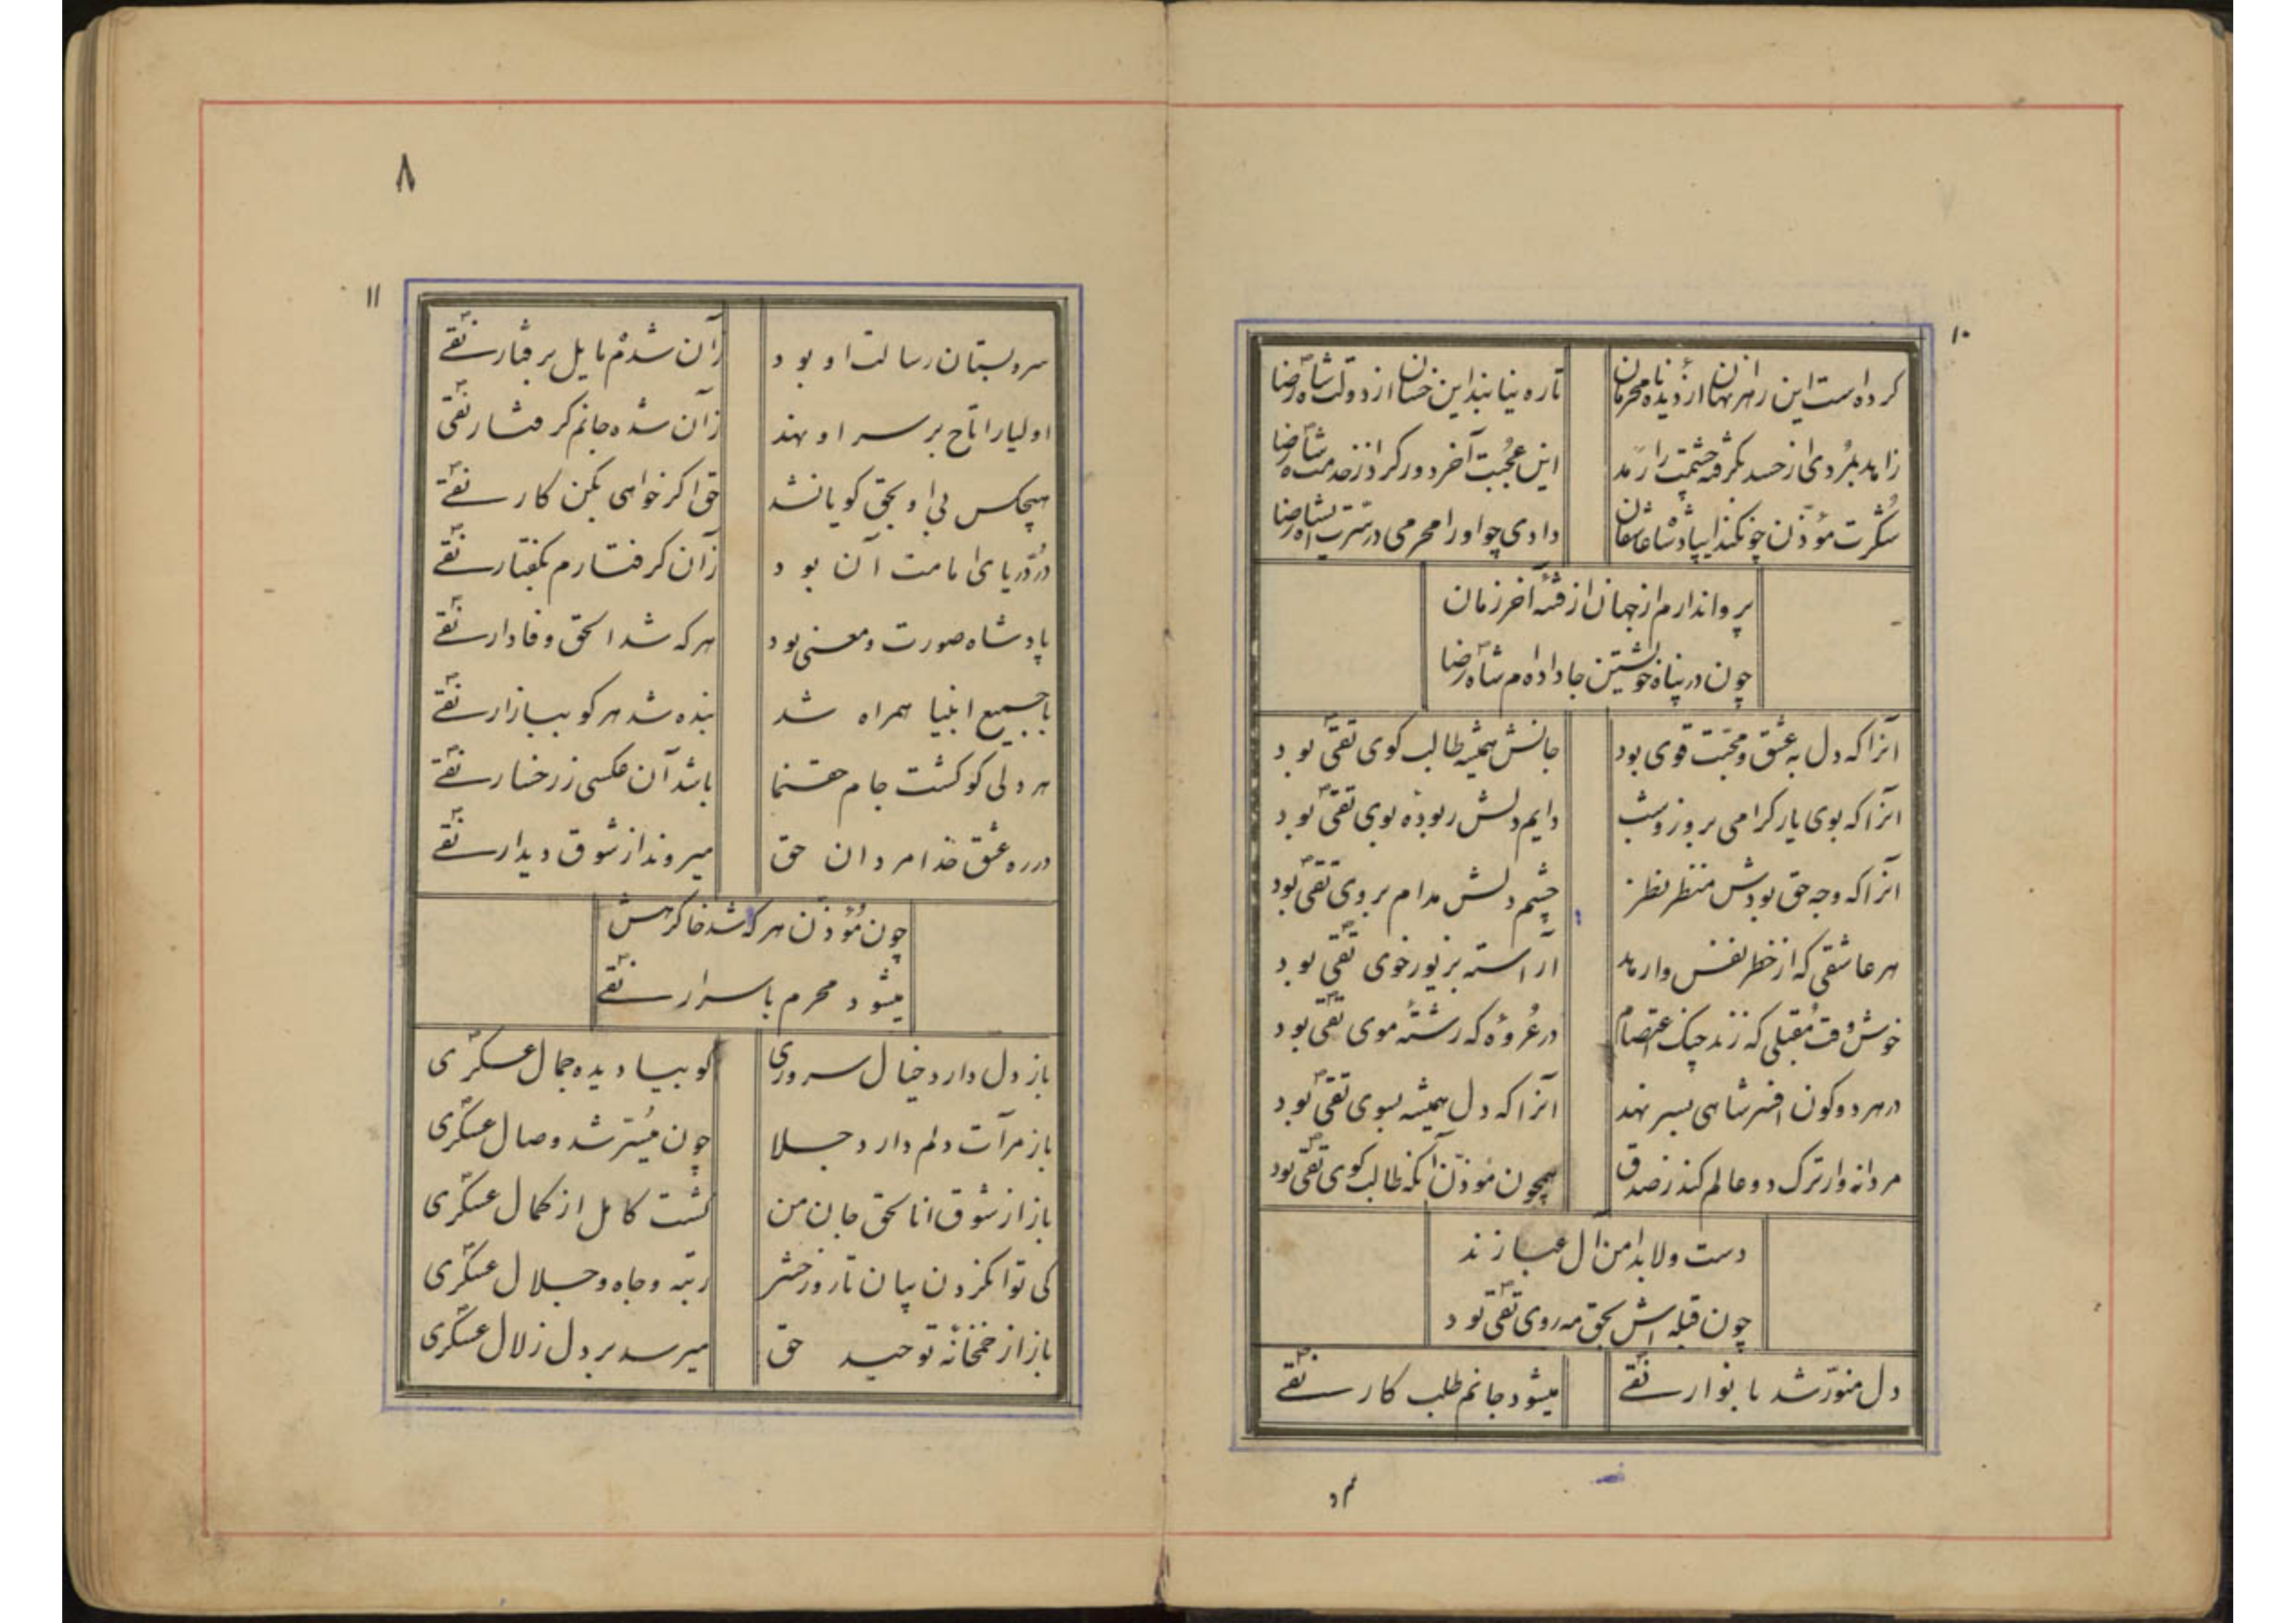 ۱۰
کرده است این رهزنان از دیده نامحرمان
تا ره نیابند این خسان از دولت شاه رضا
زاهد بمُردی از حسد بگرفته چشمت را رَمد
این عُجبت آخر دور کرد از خدمت شاه رضا
شُکرت مؤذّن چون کند ای پادشاه عاشقان
دادی چو او را محرمی در سرّ شاه رضا
پروا ندارم از جهان از فتنهٔ آخر زمان
چون در پناه خویشتن جا داده‌ام شاه رضا
آنرا که دل به عشق و محبّت قوی بود
جانش همیشه طالب کوی تقی بود
آنرا که بوی یار گرامی بروز و شب
دایم دلش ربوده بوی تقی بود
آنرا که وجه حق بودش منتظر نظر
چشم دلش مدام بروی تقی بود
هر عاشقی که از خطر نفس وارهد
آراسته بزیور خوی تقی بود
خوش وقت مُقبلی که زند چنگ اعتصام
در عُروهٔ که رشتهٔ موی تقی بود
در هر دو کون افسر شاهی بسر نهد
آنرا که دل همیشه بسوی تقی بود
مردانه وار ترک دو عالم کند ز صدق
همچون مؤذّن آنکه طالب کوی تقی بود
دست ولا بدامن آل عبا زند
چون قبله اش بحق مه روی تقی بود
دل منوّر شد بانوار نقے
میشود جانم طلب کار نقے
۸
۱۱
سرو بستان رسالت او بود
زان شدم مایل برفتار نقے
اولیا را تاج بر سر او نهد
زآن شده جانم گرفتار نقی
هیچکس بی او بحق گویا نشد
حق اگر خواهی بکن کار نقے
دُرّ دریای امامت آن بود
زآن گرفتارم بگفتار نقے
پادشاه صورت و معنی بود
هر که شد الحق وفادار نقے
با جمیع انبیا همراه شد
بنده شد هر کو ببازار نقے
هر دلی کو گشت جام حقنما
باشد آن عکسی ز رخسار نقے
در ره عشق خدا مردان حق
میروند از شوق دیدار نقے
چون مُؤذّن هر که شد خاک رهش
میشود محرم باسرار نقے
باز دل دارد خیال سروری
کو بیا دیده جمال عسکری
باز مرآت دلم دارد جلا
چون مُیسّر شد وصال عسکری
باز از شوق انا الحق جان من
گشت کامل از کمال عسکری
کی توان کردن بیان تا روز حشر
رتبه و جاه و جلال عسکری
باز از خمخانهٔ توحید حق
میرسد بر دل زلال عسکری